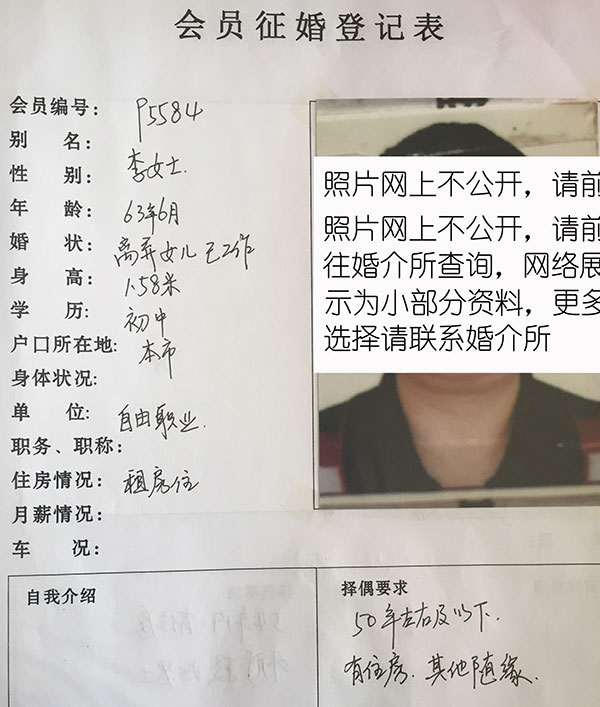 会员征婚登记表
会员编号: P5584
别 名:
性 别: 李女士.
年 龄: 63年6月
婚 状: 离弃女儿已工作
身 高: 1.58米
学 历: 初中
户口所在地: 本市
身体状况:
单 位: 自由职业.
职务、职称:
住房情况: 租房住
月薪情况:
车 况:
照片网上不公开，请前
照片网上不公开，请前
往婚介所查询，网络展
示为小部分资料，更多
选择请联系婚介所
自我介绍
择偶要求
50年左右及以下.
有住房.其他随缘.